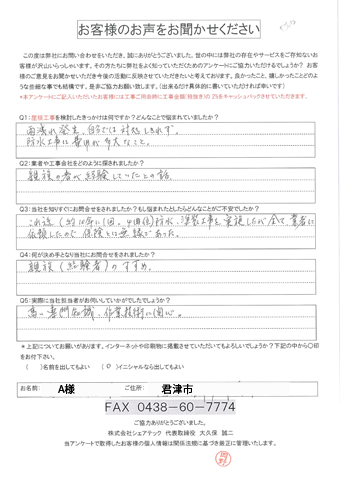 お客様のお声をお聞かせください
この度は弊社にお問い合わせをいただき、誠にありがとうございました。世の中には弊社の存在やサービスをご存知ないお
客様が沢山いらっしゃいます。その方たちに弊社をよく知っていただくためのアンケートにご協力いただけるでしょうか？お客
様のご意見をお聞かせいただき今後の活動に反映させていきたいと考えております。良かったこと、嬉しかったことどのよ
うな些細な事でも結構です。是非ご協力お願い致します。（出来るだけ具体的に書いていただければ幸いです）
*本アンケートにご記入いただいたお客様には工事ご用命時に工事金額(税抜き)の2%をキャッシュバックさせていただきます。
Q1：屋根工事を検討したきっかけは何ですか？どんなことで悩まれていましたか？
雨漏れ発生、自分では対処しきれず。
防水工事に費用が多大なこと。
Q2：業者や工事会社をどのように探されましたか？
親族の者が経験していたとの話。
Q3：当社を知りすぐにお問合せをされましたか？もし悩まれたとしたらどんなことがご不安でしたか？
これ迄（約10年に1回、4回位）防水、塗装工事を実施したが全て、業者に
依頼したので保険とは無縁であった。
Q4：何が決め手となり当社にお問合せをされましたか？
親族（経験者）のすすめ。
Q5：実際に当社担当者がお伺いしていかがでしたでしょうか？
高い専門知識、作業技術に関心。
＊上記についてお願いがあります。インターネットや印刷物に掲載させていただいてもよろしいでしょうか？下記の中から〇印
をお付下さい。
（　）名前を出してもよい　（〇）イニシャルなら出してもよい
お名前：　A様　ご住所：　君津市
FAX 0438-60-7774
ご協力ありがとうございました。
株式会社シェアテック 代表取締役 大久保 誠二
当アンケートで取得したお客様の個人情報は関係法規に基づき厳正に管理いたします。